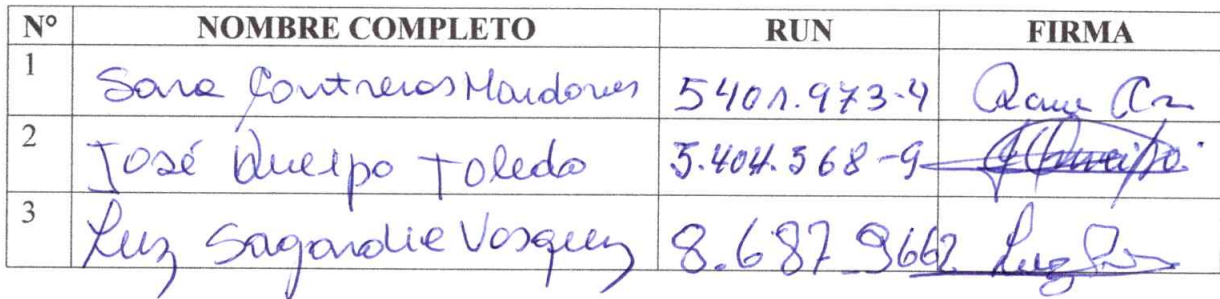 N° NOMBRE COMPLETO RUN FIRMA
1 Sara Contreras Mardones 5401.973-4
2 José Queipo Toledo 5.404.568-9 Queipo
3 Luz Sagardie Vasquez 8.687.9662 Luz